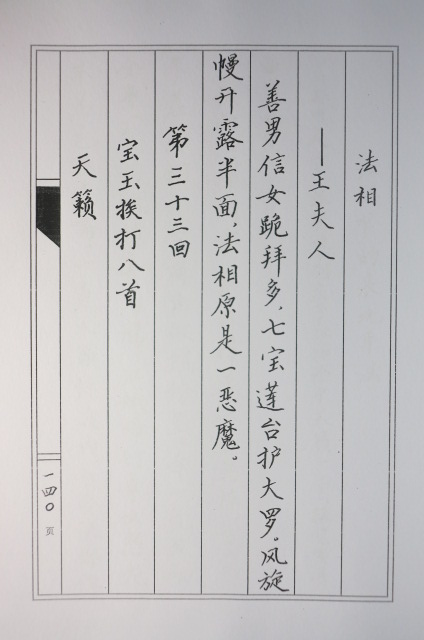 法相
——王夫人
善男信女跪拜多，七宝莲台护大罗。风旋
幔开露半面，法相原是一恶魔。
第三十三回
宝玉挨打八首
天籁
一四〇页